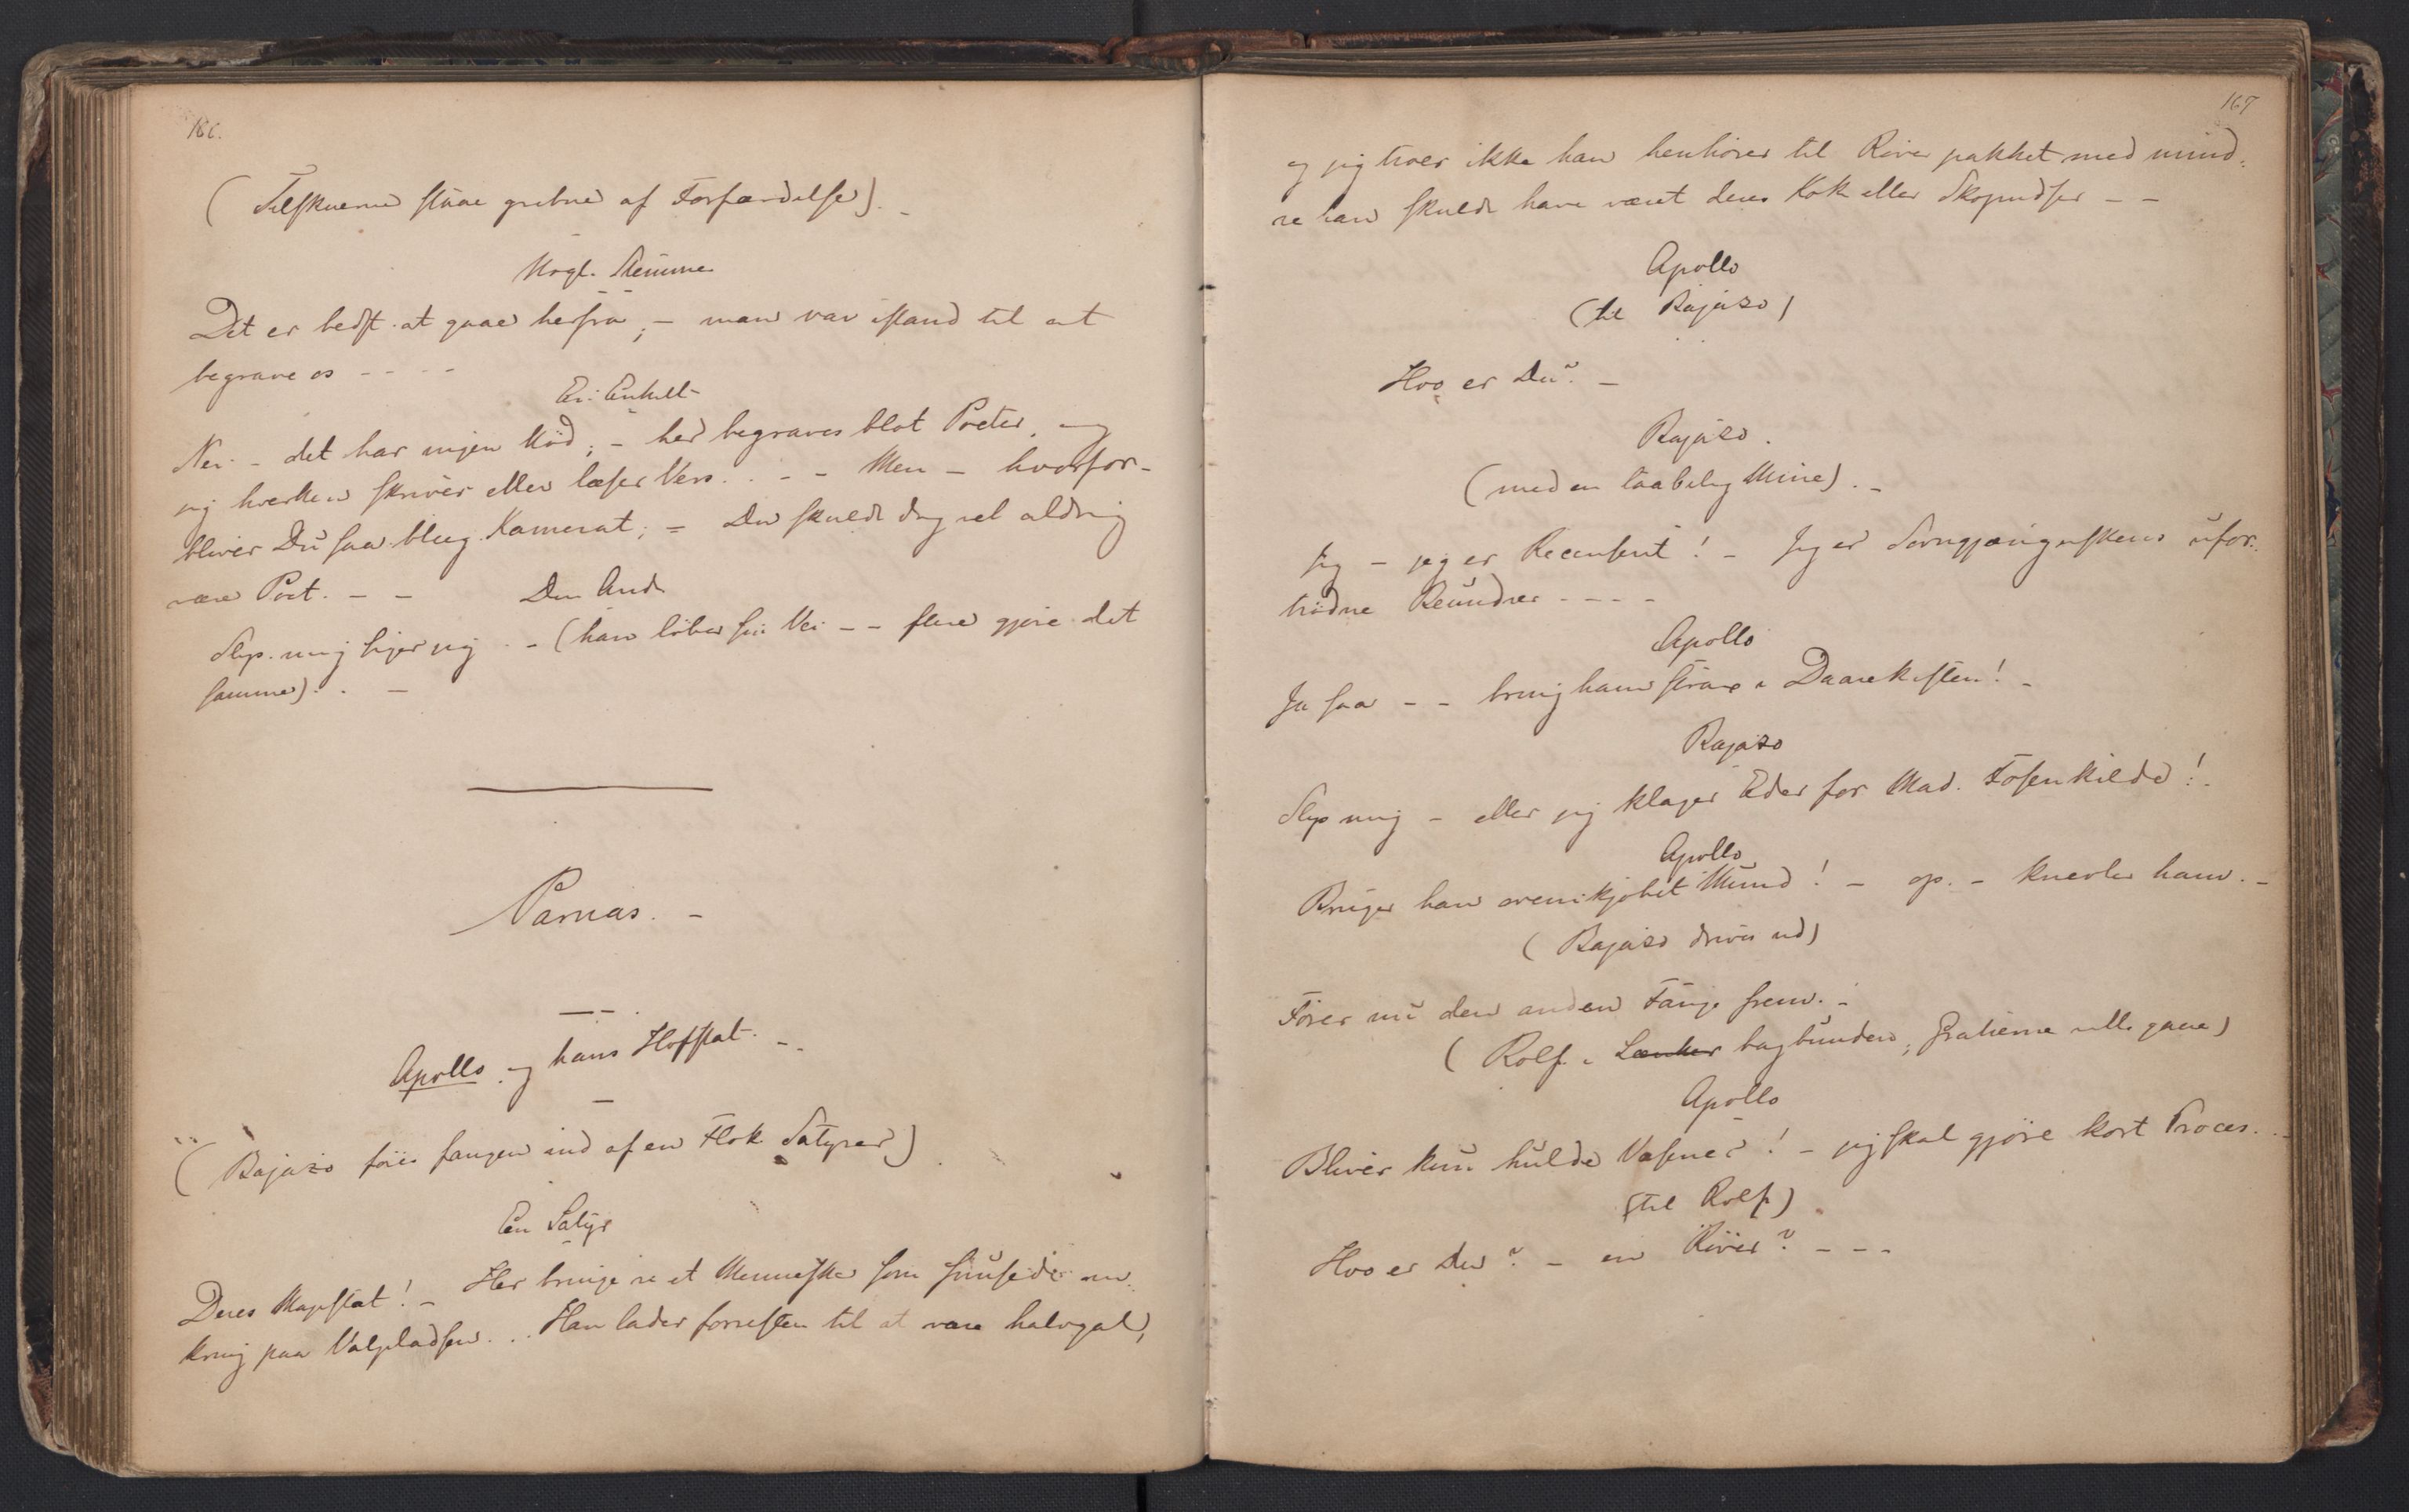 166.
(Tilskuerne staae grebne af Forfærdelse). –
Nogle Stemmer
Det er bedst at gaae herfra; – man var istand til at
begrave os – – – –
En Enkelt
Nei – det har ingen Nød; – her begraves blot Poeter, og
jeg hverken skriver eller læser Vers. . – – Men – hvorfor –
bliver Du saa bleg Kamerat; – Du skulde dog vel aldrig
være Poet. – –
Den Anden
Slip mig siger jeg . – (han løber sin Vei – – flere gjøre det
samme). . –
Parnas. –
Apollo og hans Hofstat. –
(Bajazo føres fangen ind af en Flok Satyrer)
En Satyr
Deres Majestæt! – Her bringe vi et Menneske som snusede om-
kring paa Valpladsen. . . Han lader forresten til at være halvgal,
167
og jeg troer ikke han henhører til Røverpakket med mind-
re han skulde have været deres Kok eller Skopudser – –
Apollo
(til Bajazo)
Hvo er Du? –
Bajazo.
(med en taabelig Mine). –
Jeg – jeg er Recensent! – Jeg er Søvngjængerskens ufor-
trødne Beundrer – – – –
Apollo
Ja saa – – bring ham strax i Daarekisten! –
Bajazo
Slip mig – eller jeg klager Eder for Mad. Fosenkilde!
Apollo
Bruger han ovenikjøbet Mund! – op. – knevler ham. –
(Bajazo drives ud)
Fører nu den anden Fange frem. –
(Rolf i Lænker bagbunden; Gratierne ville gaae)
Apollo
Bliver kun hulde Væsner! – jeg skal gjøre kort Proces. . –
(til Rolf)
Hvo er Du? – en Røver? – – –